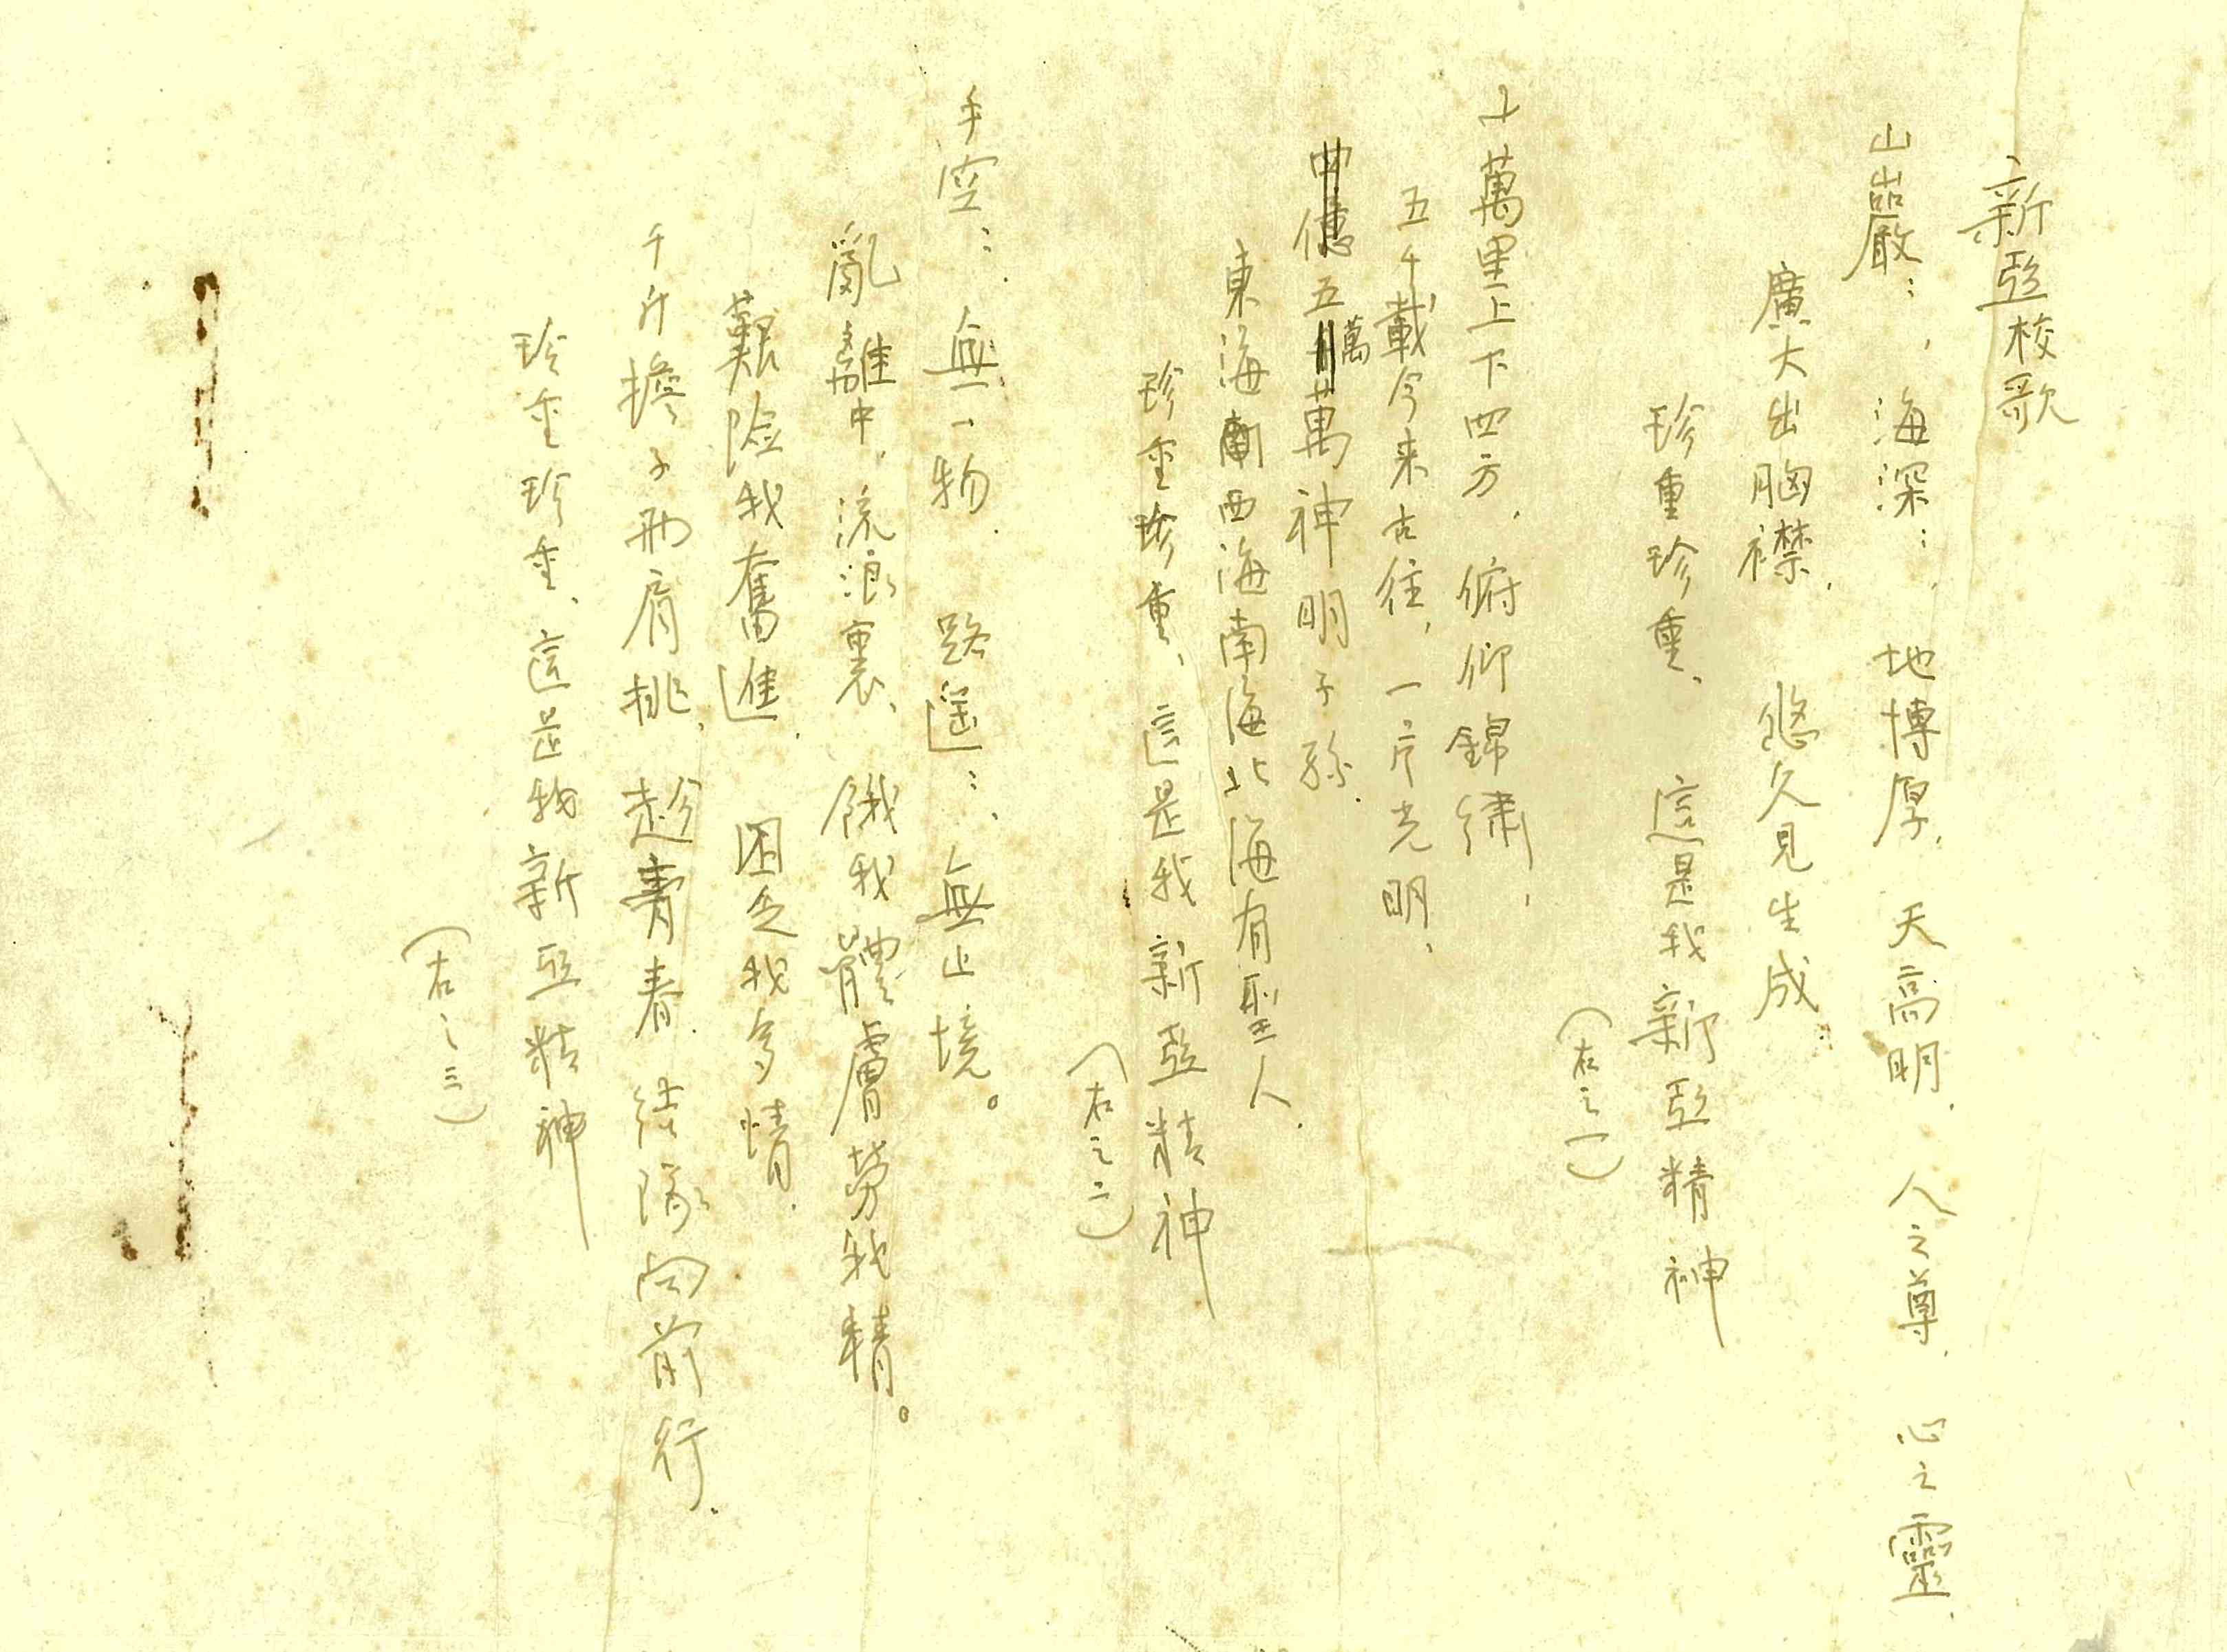 新亞校歌
山巖：，海深：，地博厚，天高明，人之尊，心之靈，
廣大出胸襟，悠久見生成。
珍重珍重、這是我新亞精神
（右之一）
十萬里上下四方，俯仰錦繡，
五千載今来古往，一片光明、
五萬萬神明子孫．
東海西海南海北海有聖人．
珍重珍重、這是我新亞精神
（右之二）
手空：，無一物．路遥：，無止境。
亂離中，流浪裏、餓我體膚勞我精。
艱險我奮進．困乏我多情．
千斤擔子兩肩挑，趁青春．結隊向前行．
珍重珍重、這是我新亞精神
（右之三）